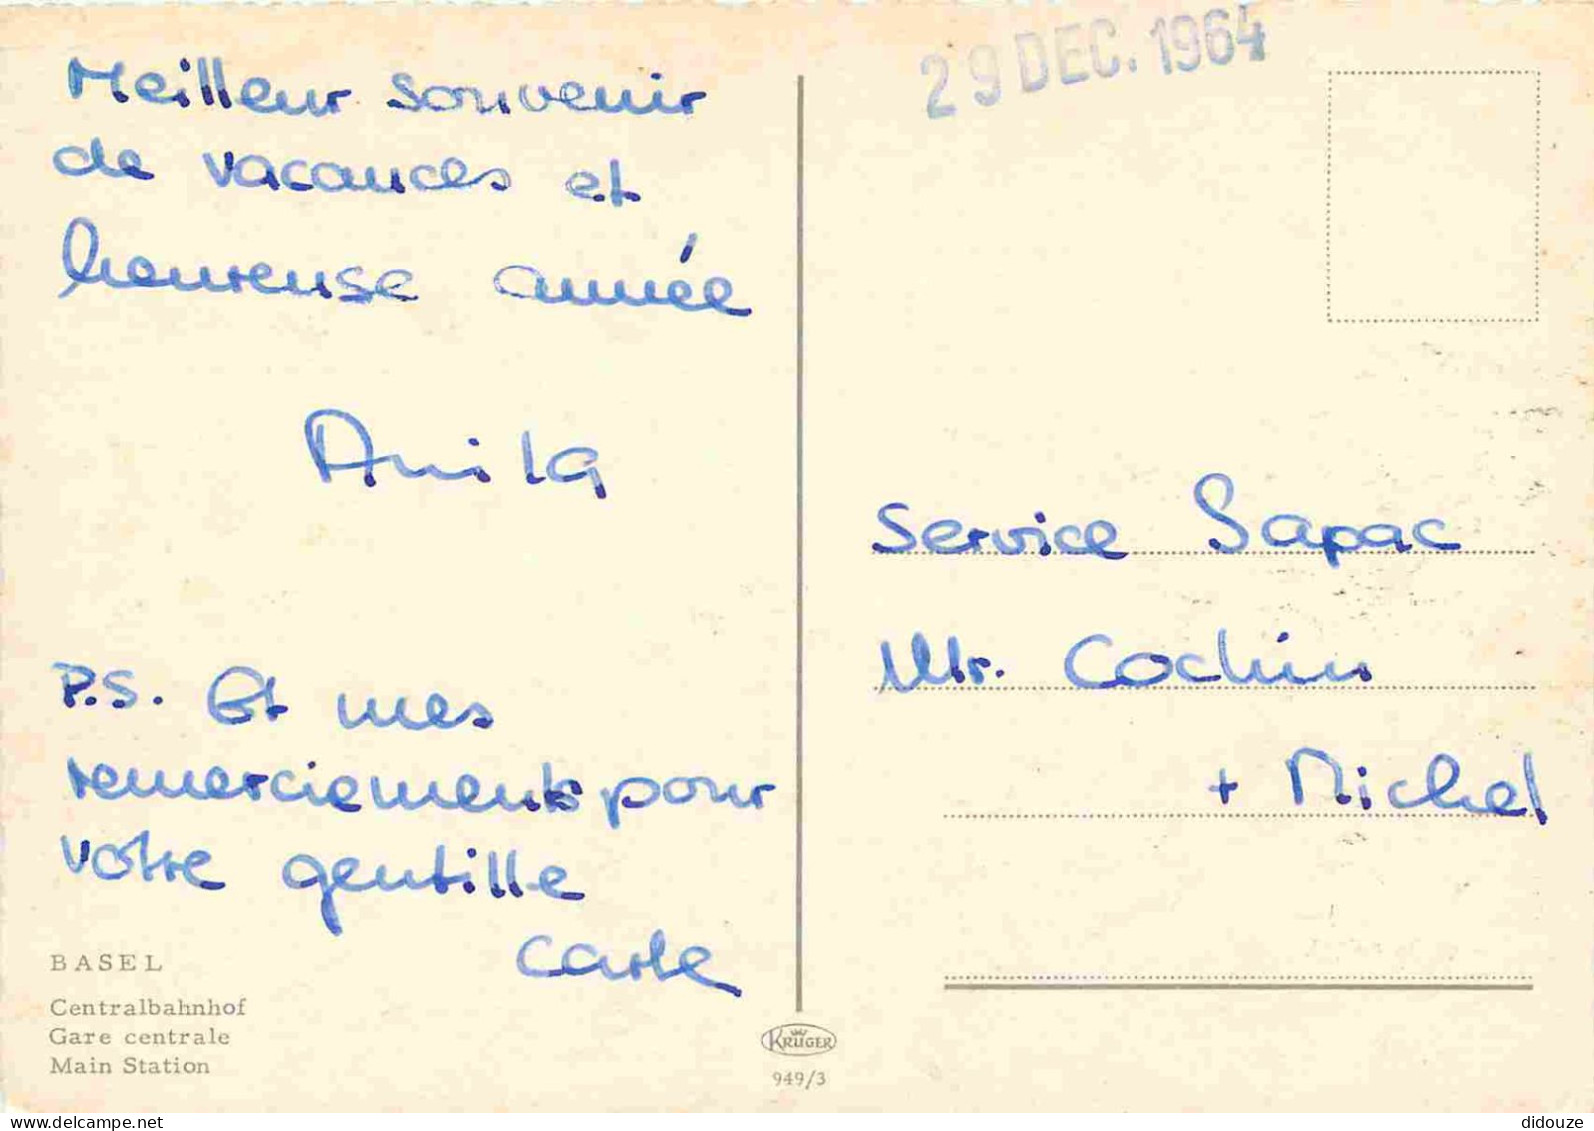 29 DEC. 1964
Meilleur souvenir
de vacances et
heureuse année
Anita
P.S. Et mes
remerciements pour
votre gentille
carte
BASEL
Centralbahnhof
Gare centrale
Main Station
Service Sapac
Mr. Cochin
+ Michel
KRÜGER
949/3
www.delcampe.net
didouze